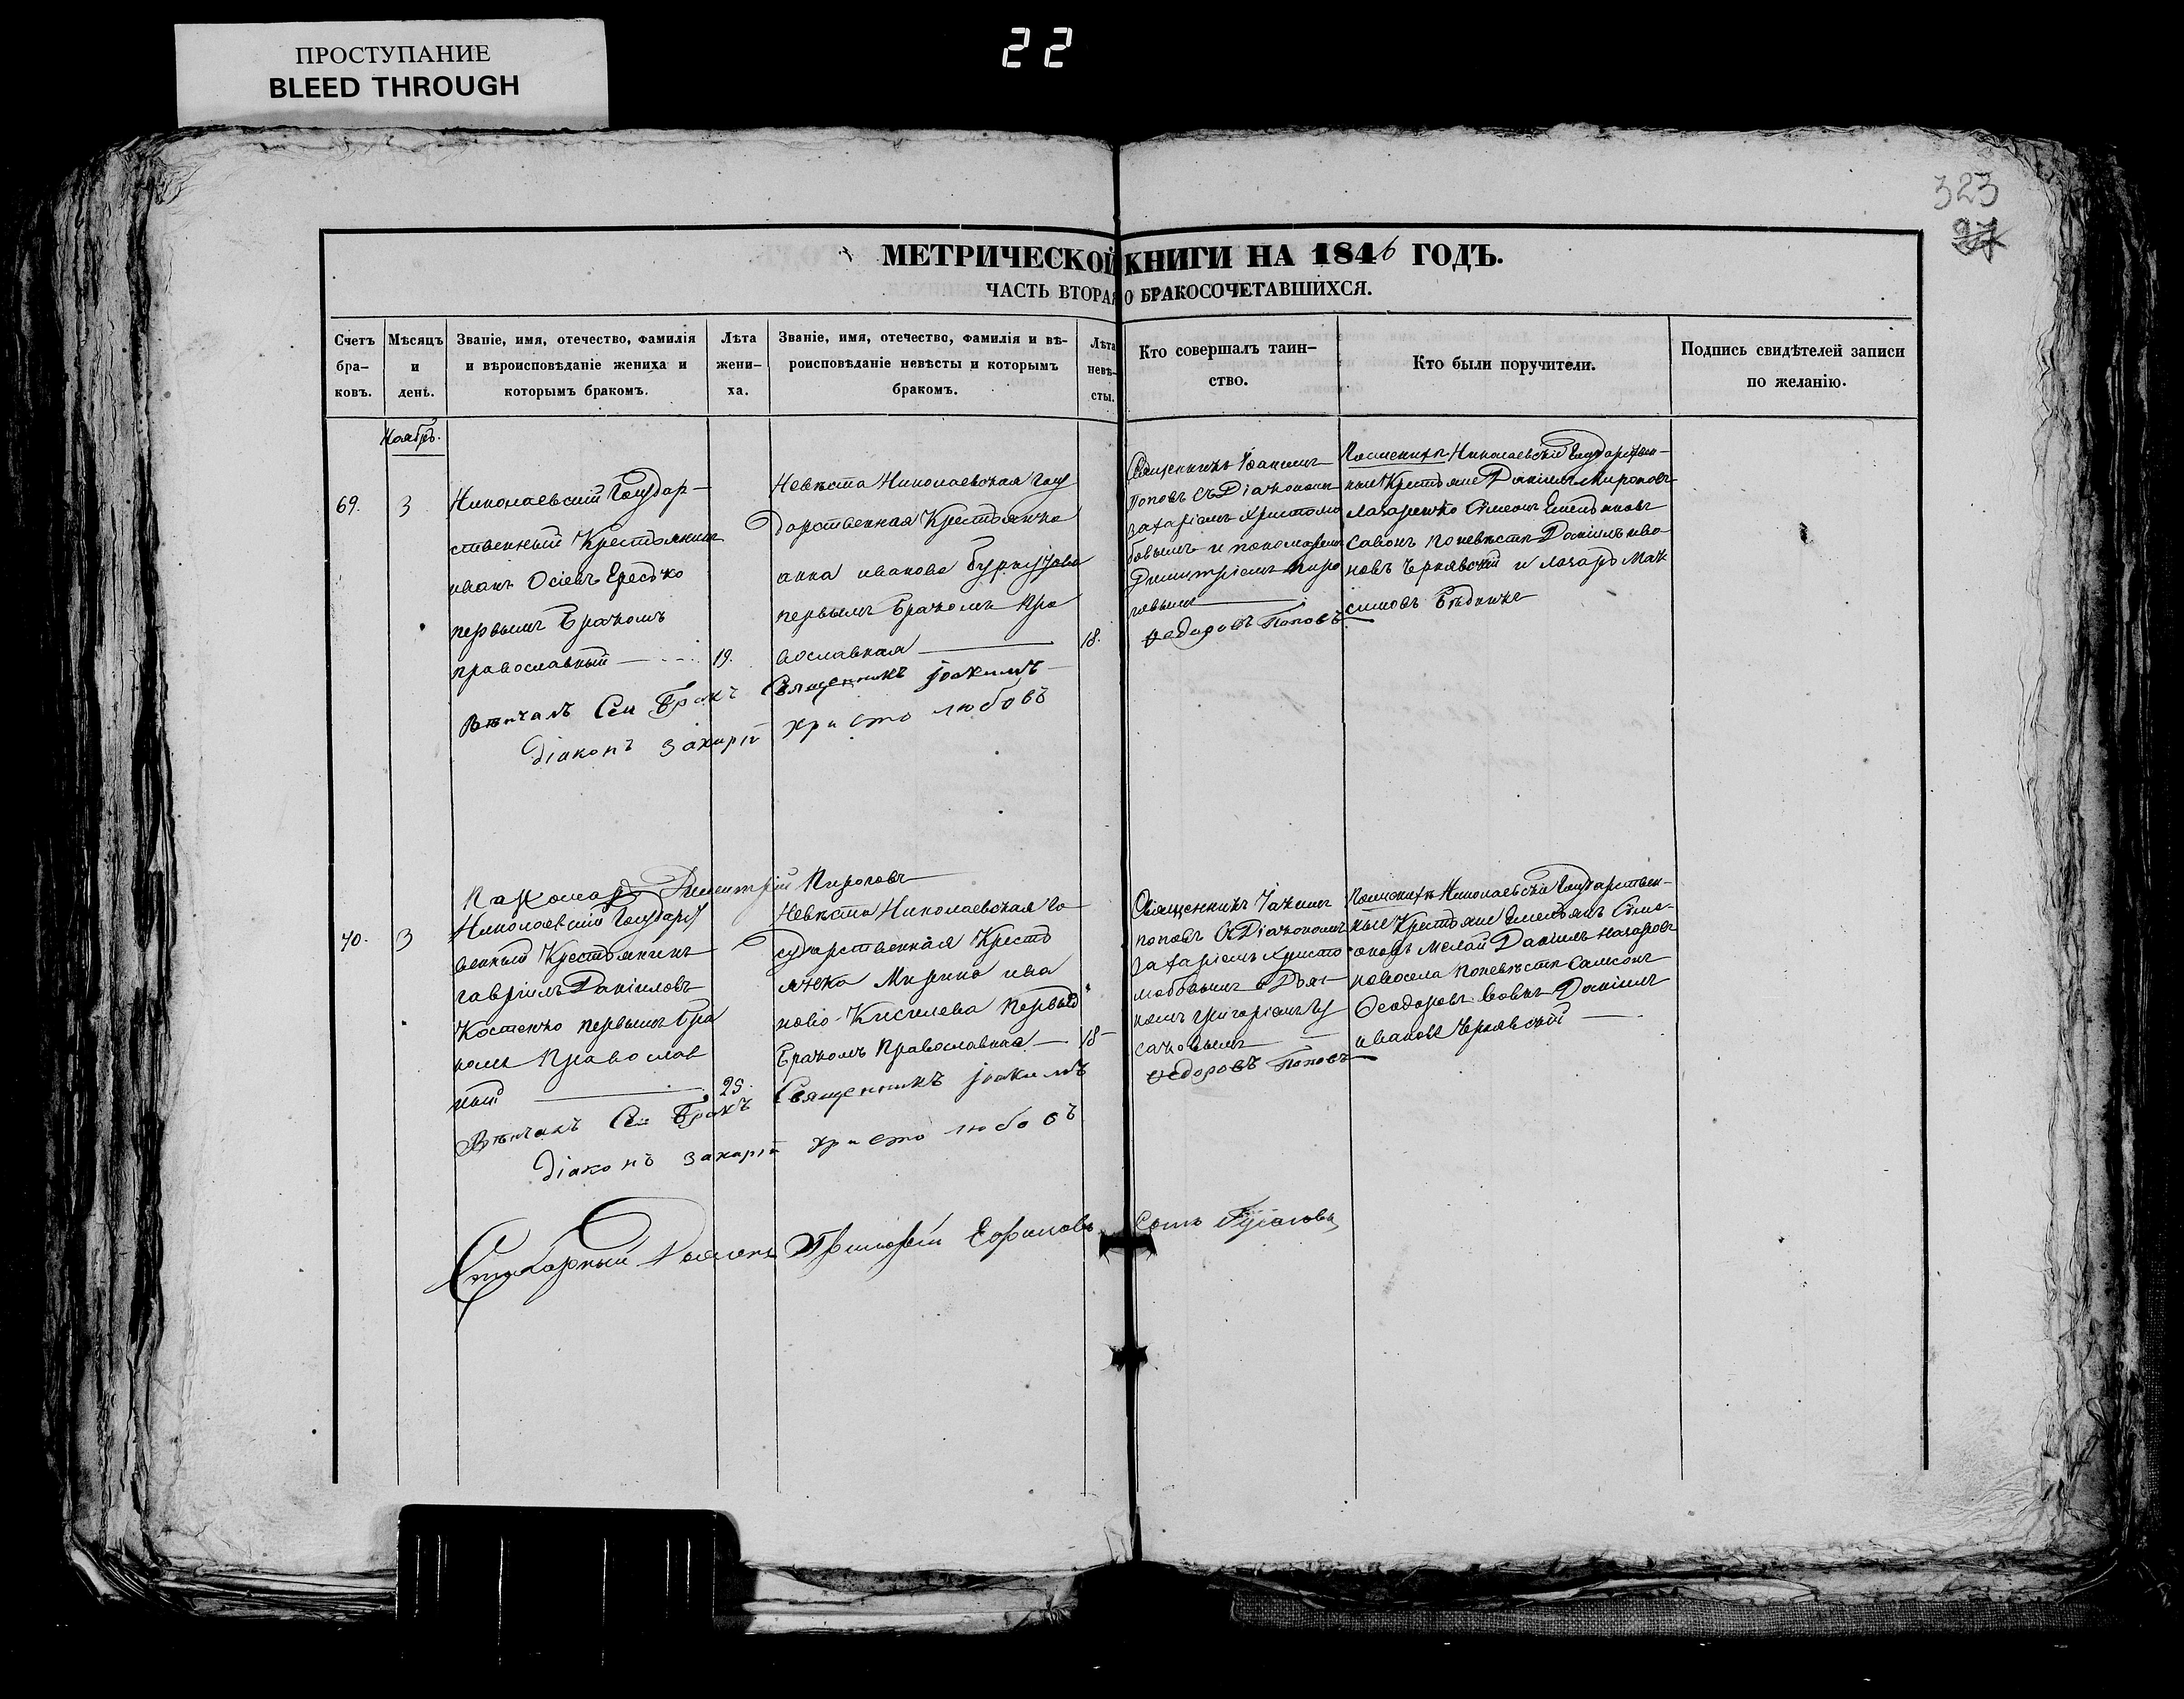 ПРОСТУПАНИЕ
BLEED THROUGH
22
323
27
МЕТРИЧЕСКОЙ КНИГИ НА 1846 ГОДЪ.
ЧАСТЬ ВТОРАЯ О БРАКОСОЧЕТАВШИХСЯ.
Счетъ браковъ.
Мѣсяцъ и день.
Званіе, имя, отечество, фамилія
и вѣроисповѣданіе жениха и
которымъ бракомъ.
Лѣта
жени-
ха.
Званіе, имя, отечество, фамилія и вѣ-
роисповѣданіе невѣсты и которымъ
бракомъ.
Лѣта
невѣ-
сты.
Кто совершалъ таин-
ство.
Кто были поручители.
Подпись свидѣтелей записи
по желанію.
Ноябрь.
69.
3
Николаевскій Государ-
ственный Крестьянинъ
иванъ Осіевъ
первымъ бракомъ
православный
19.
Невѣста Николаевская Госу
дарственная Крестьянка
анна иванова
первымъ бракомъ пра
вославная
18.
Священникъ Іоакимъ
Поповъ съ Діакономъ
захаріемъ христолю
бовымъ и пономаремъ
Димитріемъ Пиро
говымъ
Федоровъ Поповъ
Поженихѣ Николаевскіе Государствен-
ные Крестьяне Даніилъ Мироновъ
Лазаренко Симеонъ Емельяновъ
Поневѣстѣ Даніилъ ива
новъ Чернявскій и Лазарь Мак
симовъ
Вѣнчалъ Сей Бракъ Священникъ Іоакимъ
Діаконъ Захарій христолюбовъ
Димитрій Пироговъ
70.
3
Николаевскій Государст
венный Крестьянинъ
гавріилъ Даніиловъ
Костенко первымъ бра
комъ Православ
ный
25.
Невѣста Николаевская Го
сударственная Кресть
янка Марина ива
нова Киселева первымъ
бракомъ Православная
18
Священникъ Іакимъ
Поповъ съ Діакономъ
Захаріемъ Христо
любовымъ и Дьяч
комъ Григоріемъ Гу
саковымъ
Федоровъ Поповъ
Поженихѣ Николаевскіе Государствен-
ные Крестьяне Емельянъ Симе-
оновъ Даніилъ Назаровъ
новосела Поневѣстѣ Самсонъ
Феодоровъ Даніилъ
ивановъ Чернявскій
Вѣнчалъ Сей Бракъ Священникъ Іоакимъ
Діаконъ Захарій христолюбовъ
Стихарный Григорій Ефимовъ Сынъ Гусаковъ